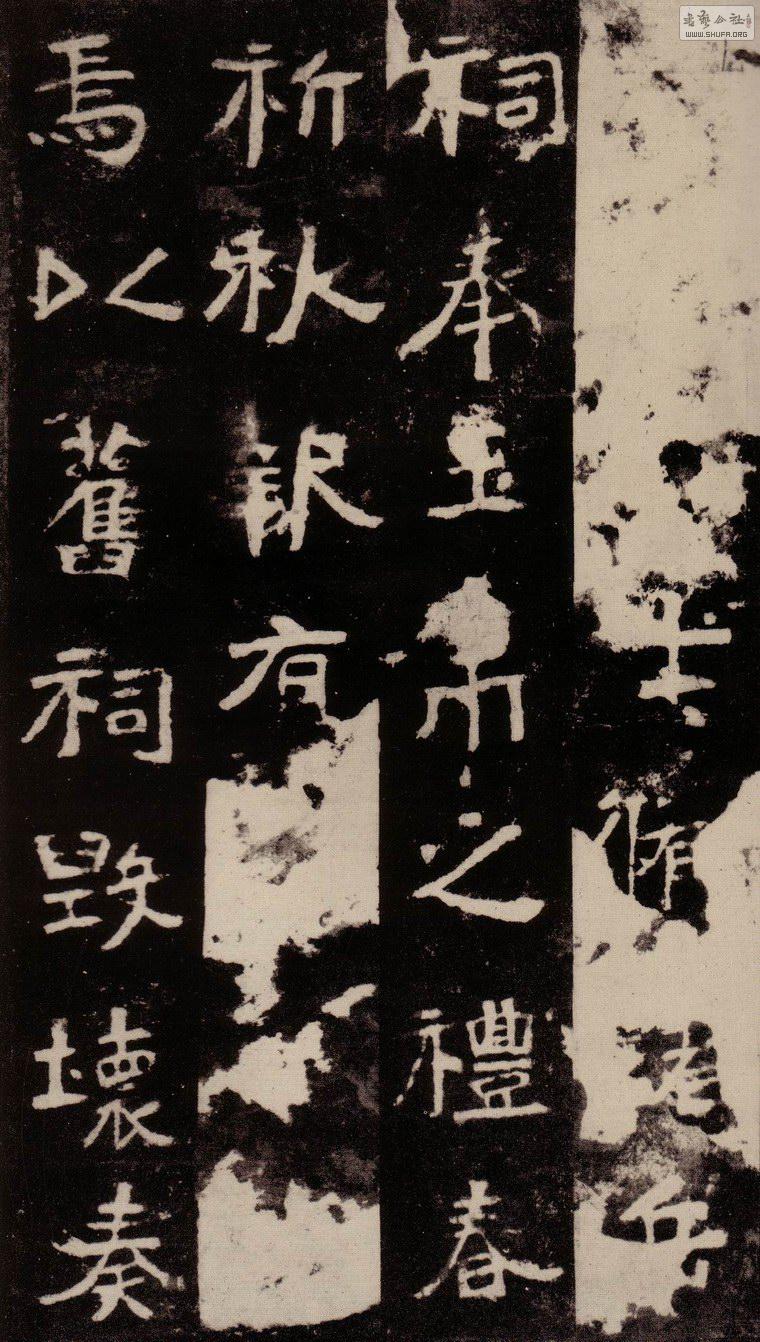 書藝公社
WWW.SHUFA.ORG
脩岳
祠奉玉帛之禮春
祈秋報有
焉以舊祠毀壞奏